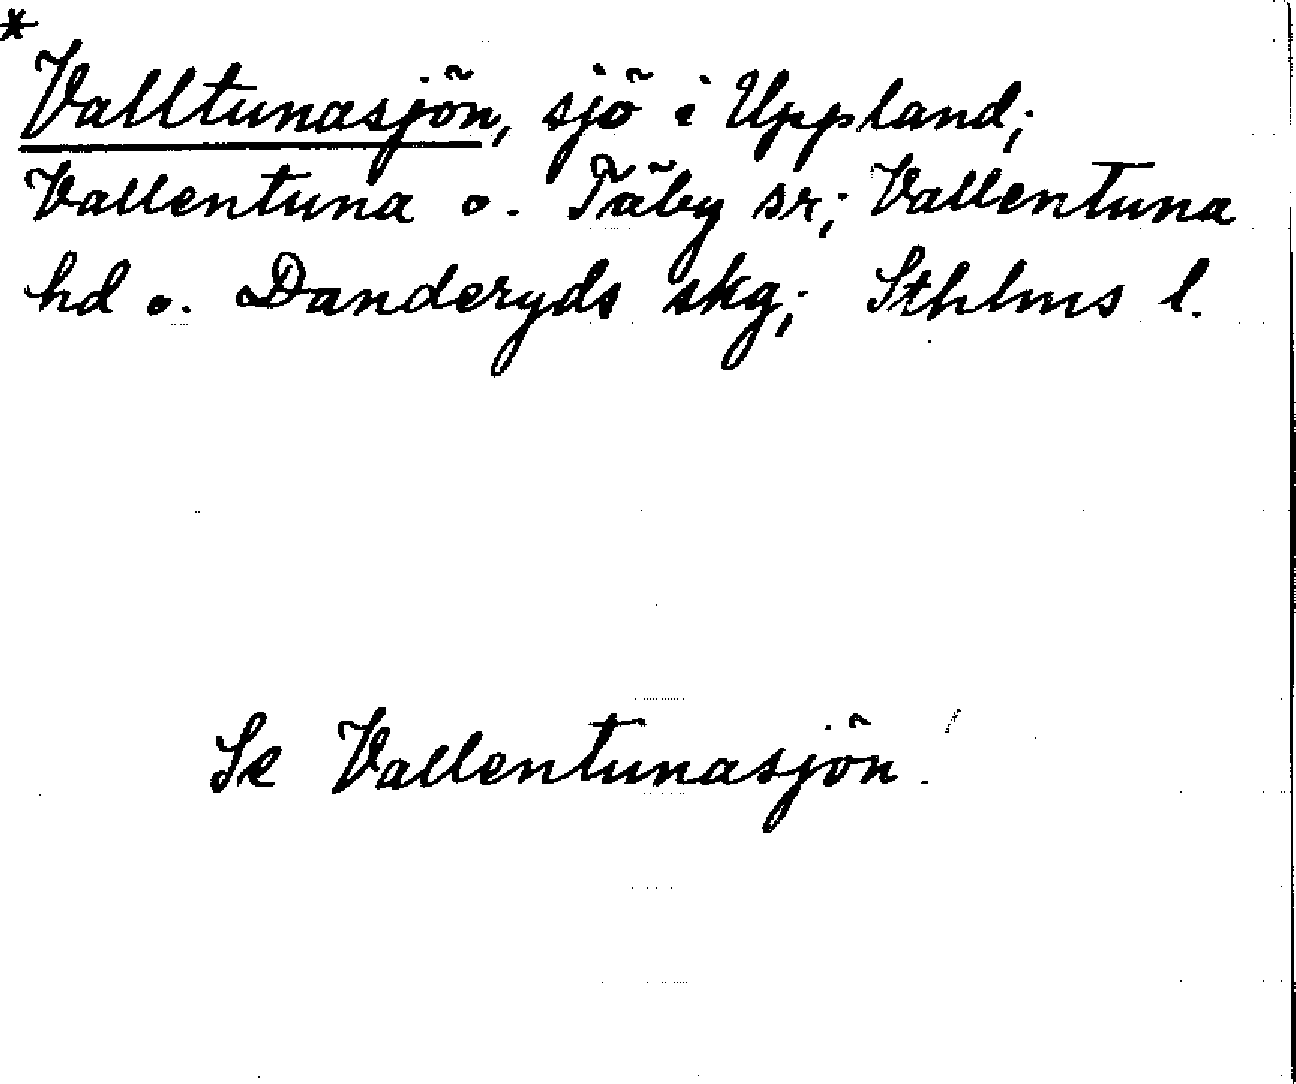 *
Valltunasjön, sjö i Uppland;
Vallentuna o. Täby sr; Vallentuna
hd o. Danderyds skg; Sthlms l.
Se Vallentunasjön.